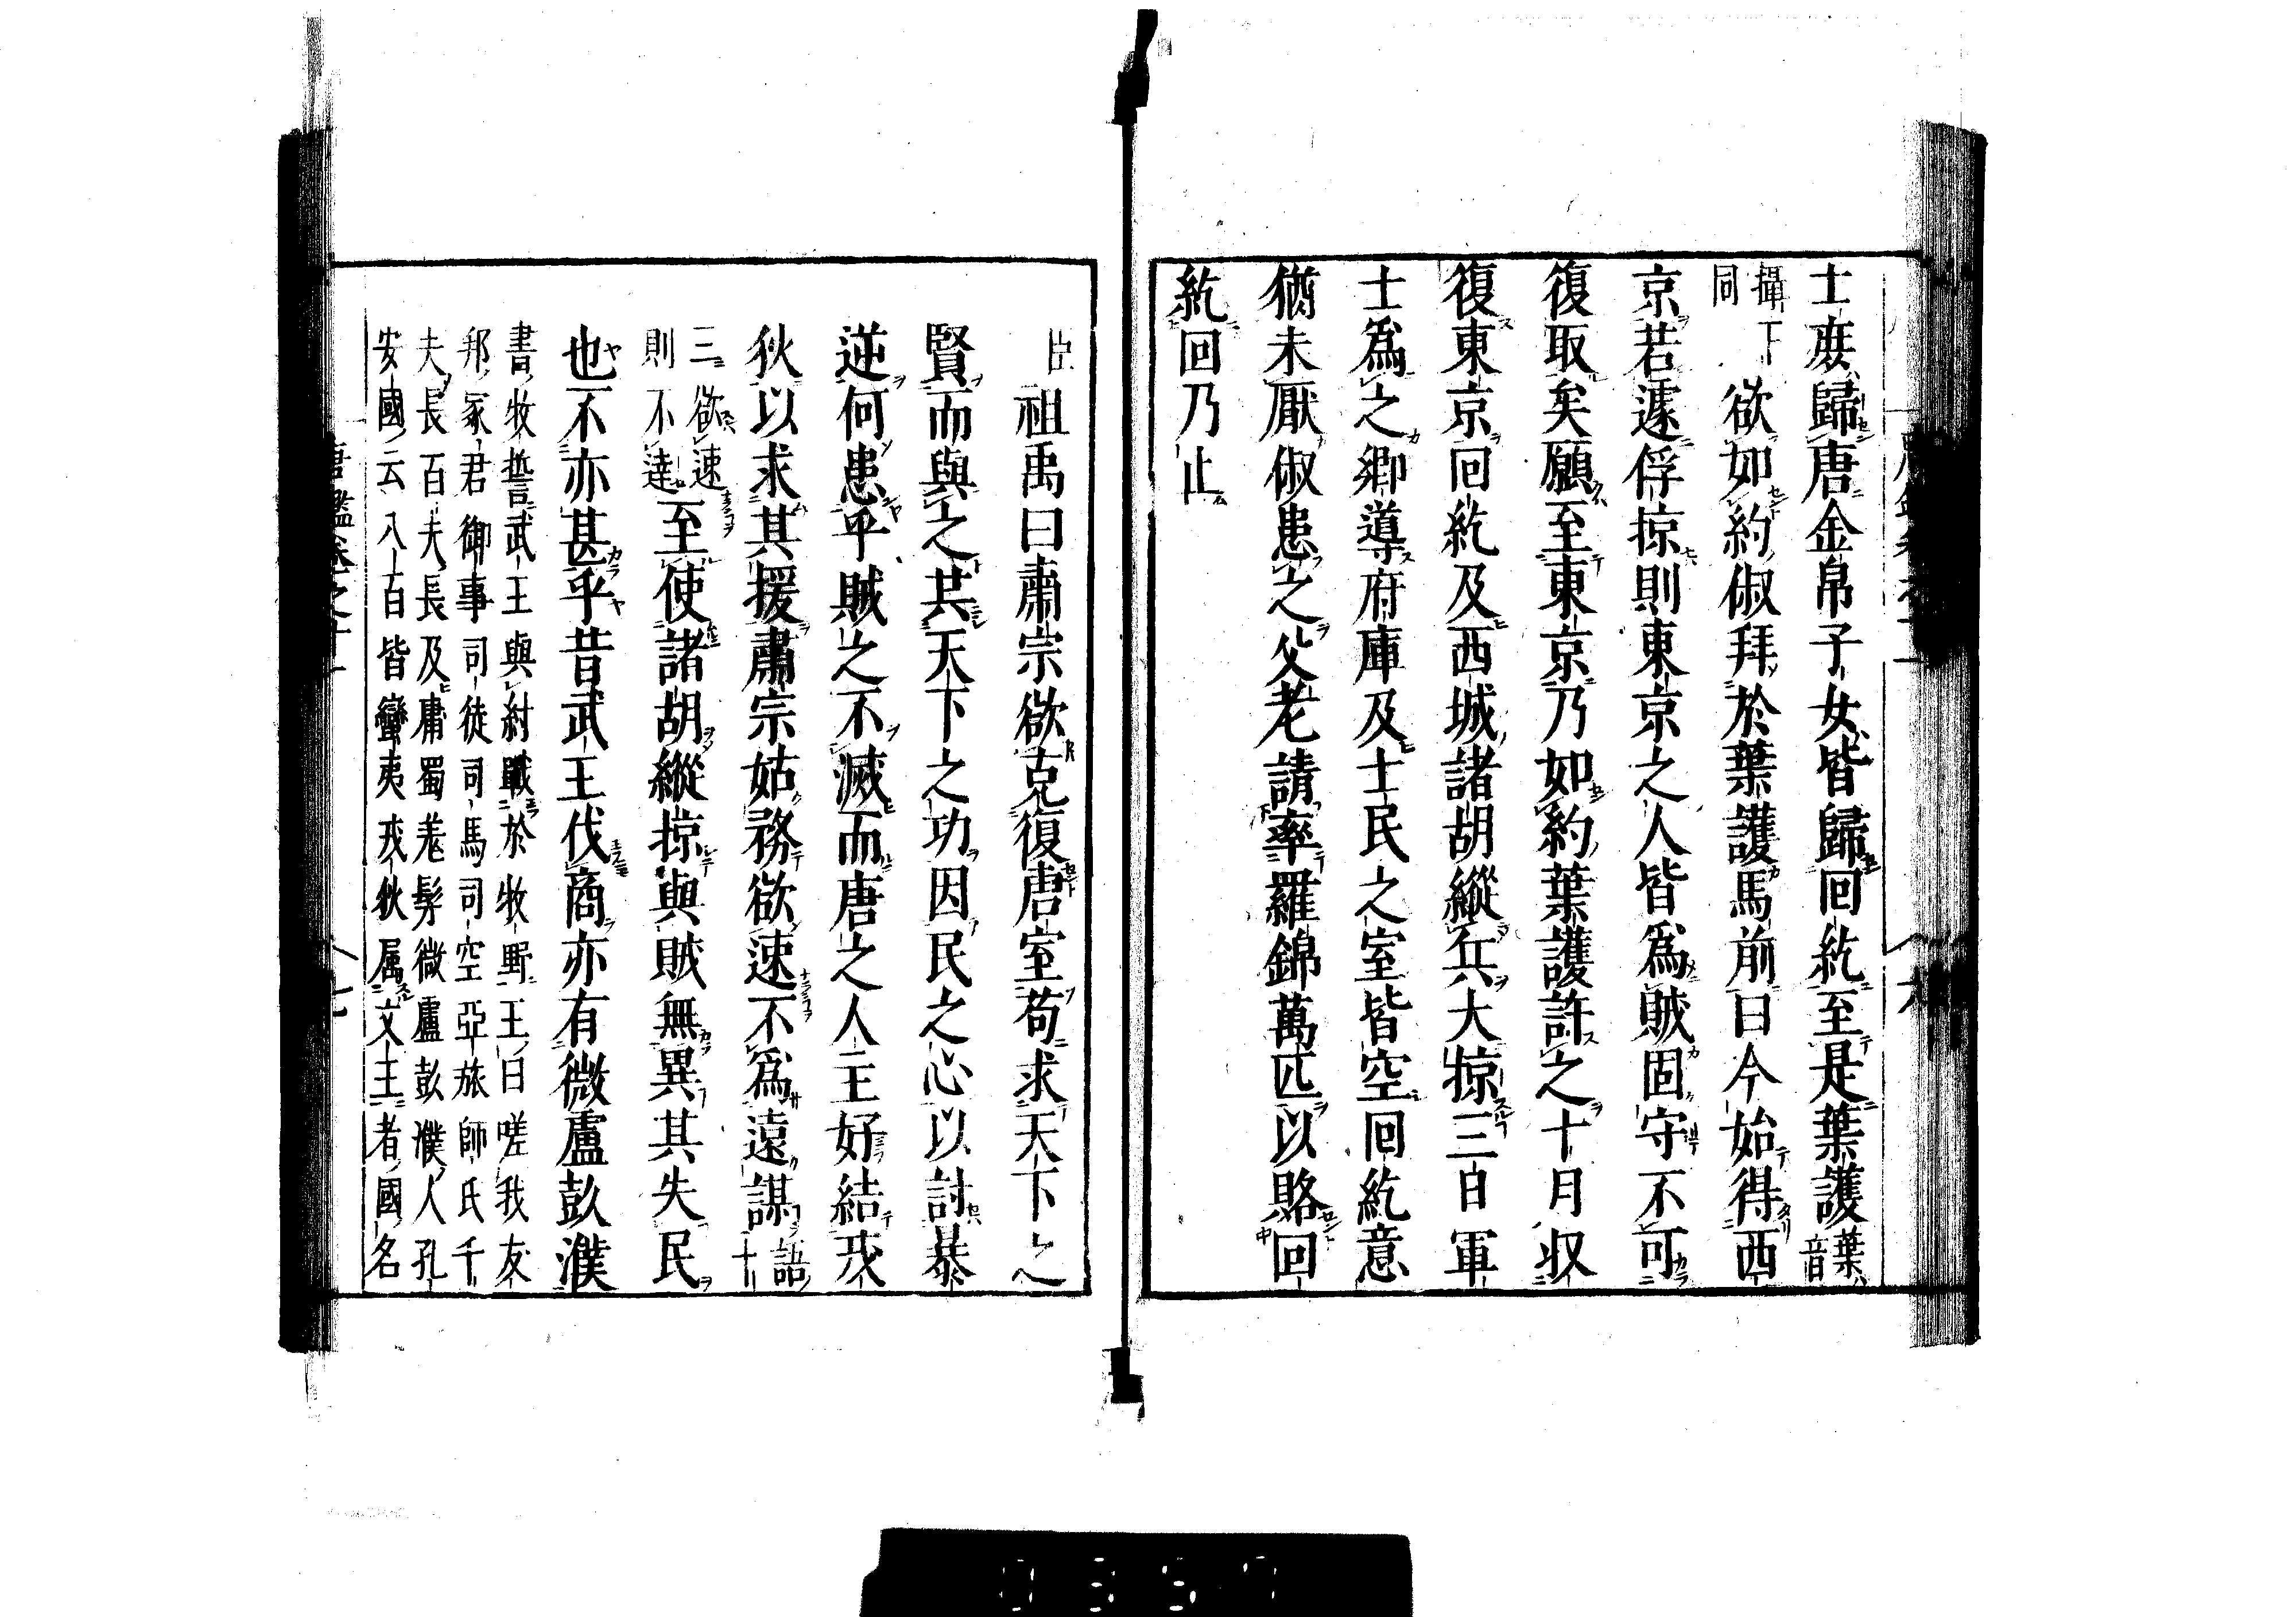 士庶歸唐金帛子女皆歸回紇至是葉護葉音
攝下同欲如約俶拜於葉護馬前曰今始得西
京若遽俘掠則東京之人皆爲賊固守不可
復取矣願至東京乃如約葉護許之十月収
復東京回紇及西域諸胡縱兵大掠三日軍
士爲之鄕導府庫及士民之室皆空回紇意
猶未厭俶患之父老請率羅錦萬匹以賂回
紇回乃止
臣祖禹曰肅宗欲克復唐室苟求天下之
賢而與之共天下之功因民之心以討暴
逆何患乎賊之不滅而唐之人主好結戎
狄以求其援肅宗姑務欲速不爲遠謀語十
三欲速則不達至使諸胡縱掠與賊無異其失民
也不亦甚乎昔武王伐商亦有微盧彭濮
書牧誓武王與紂戰於牧野王曰嗟我友
邦冢君御事司徒司馬司空亞旅師氏千
夫長百夫長及庸蜀羌髳微盧彭濮人孔
安國云八百皆蠻夷戎狄属文王者國名
唐鑑卷之十一
七